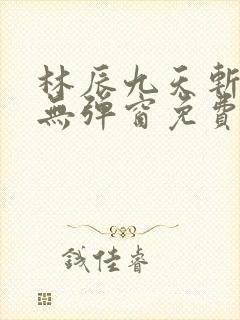 林辰九天斬
無彈窗免費
錢佳睿